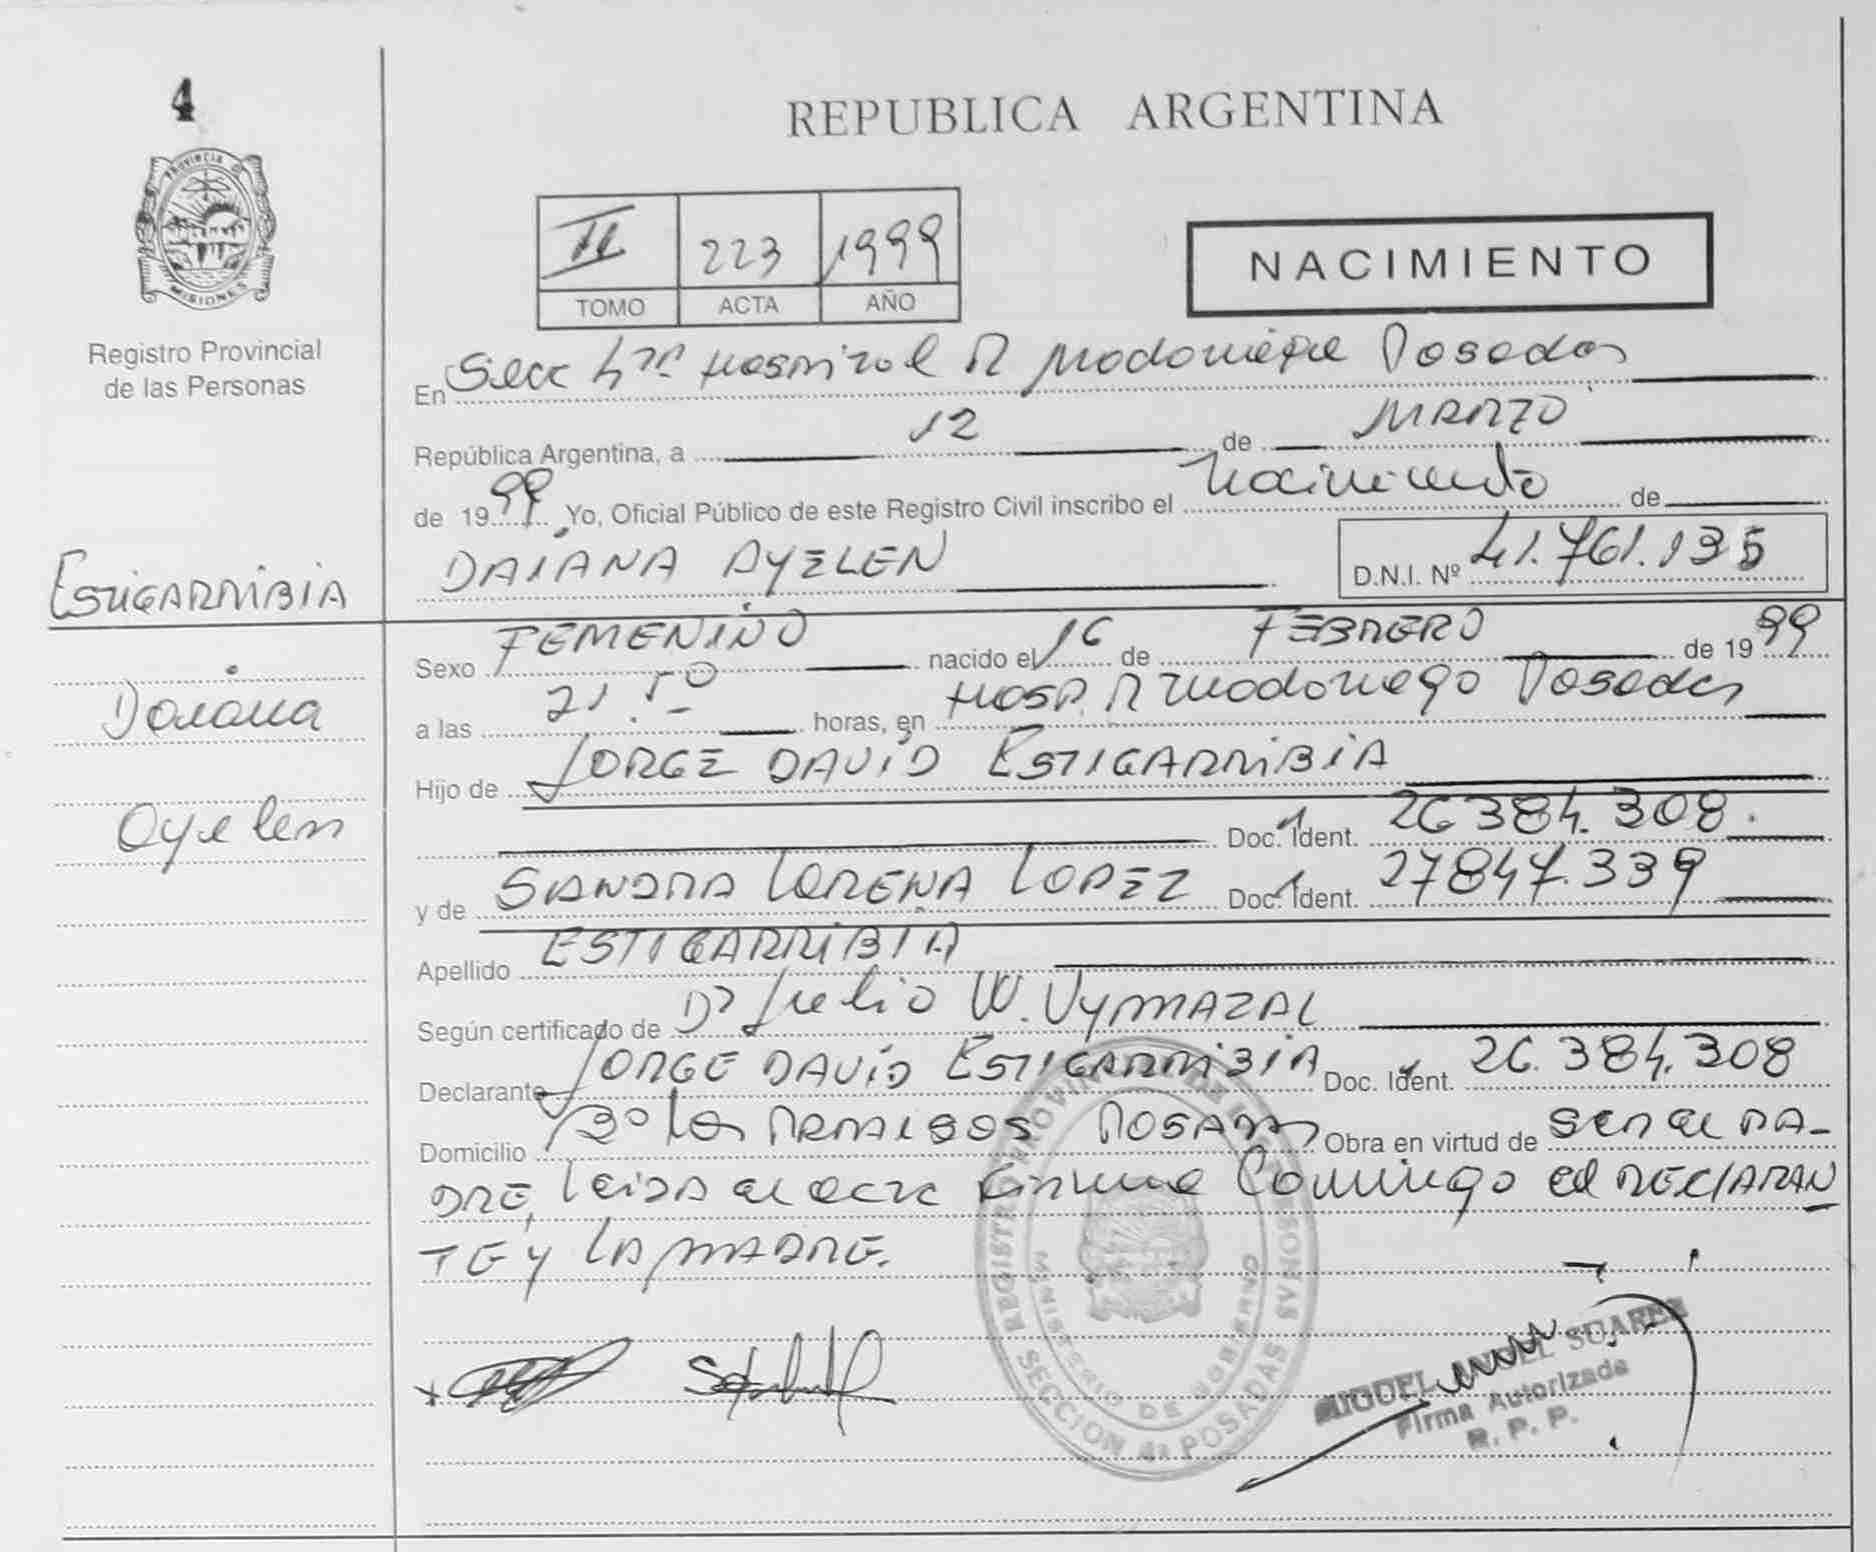 4
PROVINCIA DE
MISIONES
Registro Provincial
de las Personas
REPUBLICA ARGENTINA
II 223 1999
TOMO ACTA AÑO
NACIMIENTO
En Secc 4ta Hospital R Madariaga Posadas
República Argentina, a 12 de MARZO
de 1999 Yo, Oficial Público de este Registro Civil inscribo el nacimiento de
DAIANA AYELEN D.N.I. Nº 41.761.135
ESTIGARRIBIA
Daiana
Ayelen
Sexo FEMENINO nacido el 16 de FEBRERO de 1999
a las 21.50 horas, en Hosp. R Madariaga Posadas
Hijo de JORGE DAVID ESTIGARRIBIA
Doc. Ident. 26.384.308.
y de SANDRA LORENA LOPEZ Doc. Ident. 27847.339
Apellido ESTIGARRIBIA
Según certificado de Dr Julio W. VYMAZAL
Declarante JORGE DAVID ESTIGARRIBIA Doc. Ident. 26.384.308
Domicilio Bo Los POSADAS Obra en virtud de SER el PA-
DRE, leida el acta firma Conmigo el DECLARAN
TE y LA MADRE.
REGISTRO PROVINCIAL DE LAS PERSONAS
MINISTERIO DE GOBIERNO
SECCION 4a POSADAS
MIGUEL ANGEL SUAREZ
Firma Autorizada
R. P. P.